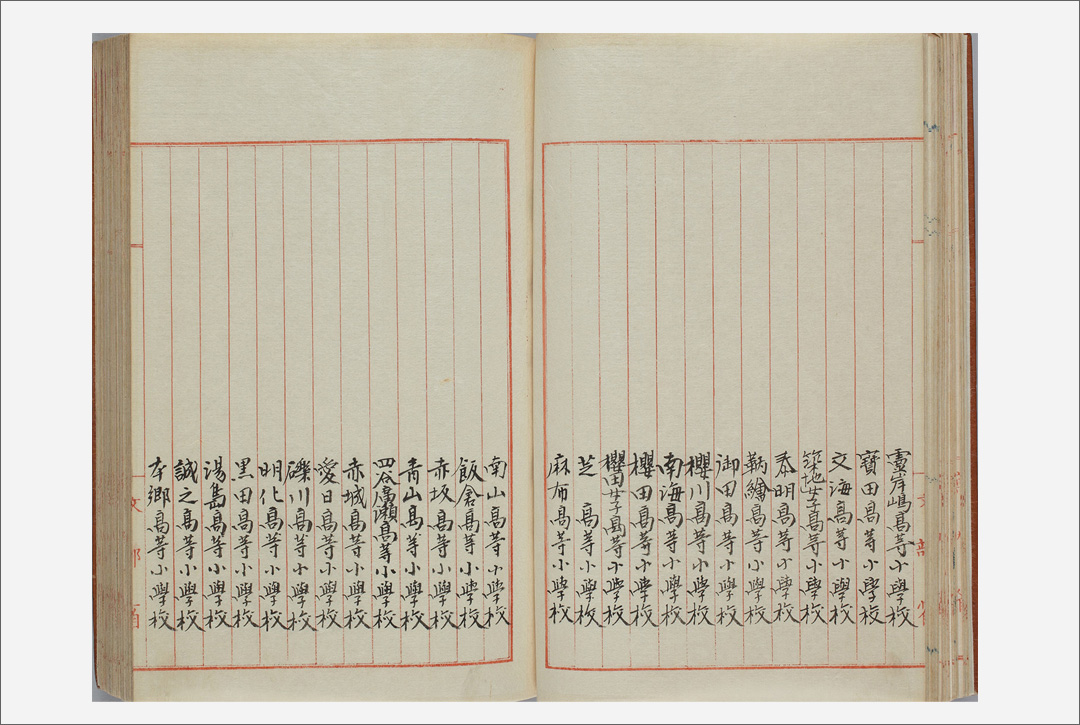 靈岸嶋高等小學校
寶田高等小學校
文海高等小學校
築地女子高等小學校
泰明高等小學校
鞆繪高等小學校
御田高等小學校
櫻川高等小學校
南海高等小學校
櫻田高等小學校
櫻田女子高等小學校
芝高等小學校
麻布高等小學校
南山高等小學校
飯倉高等小學校
赤坂高等小學校
靑山高等小學校
四谷廣瀬高等小學校
赤城高等小學校
愛日高等小學校
礫川高等小學校
明化高等小學校
黒田高等小學校
湯島高等小學校
誠之高等小學校
本郷高等小學校
文部省